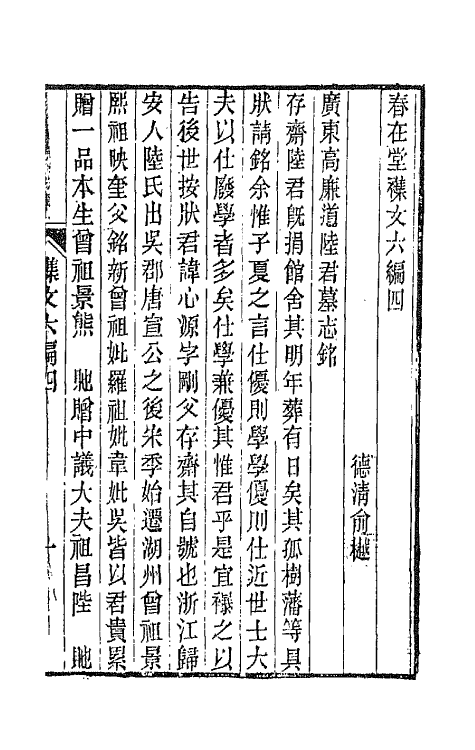 春在堂襍文六編四
德淸俞樾
廣東高廉道陸君墓志銘
存齋陸君旣捐館舍其明年葬有日矣其孤樹藩等具
狀請銘余惟子夏之言仕優則學學優則仕近世士大
夫以仕廢學者多矣仕學兼優其惟君乎是宜襮之以
告後世按狀君諱心源字剛父存齋其自號也浙江歸
安人陸氏出吳郡唐宣公之後宋季始遷湖州曾祖景
熙祖映奎父銘新曾祖妣羅祖妣韋妣吳皆以君貴累
贈一品本生曾祖景熊　馳贈中議大夫祖昌陞　馳
襍文六編四
一